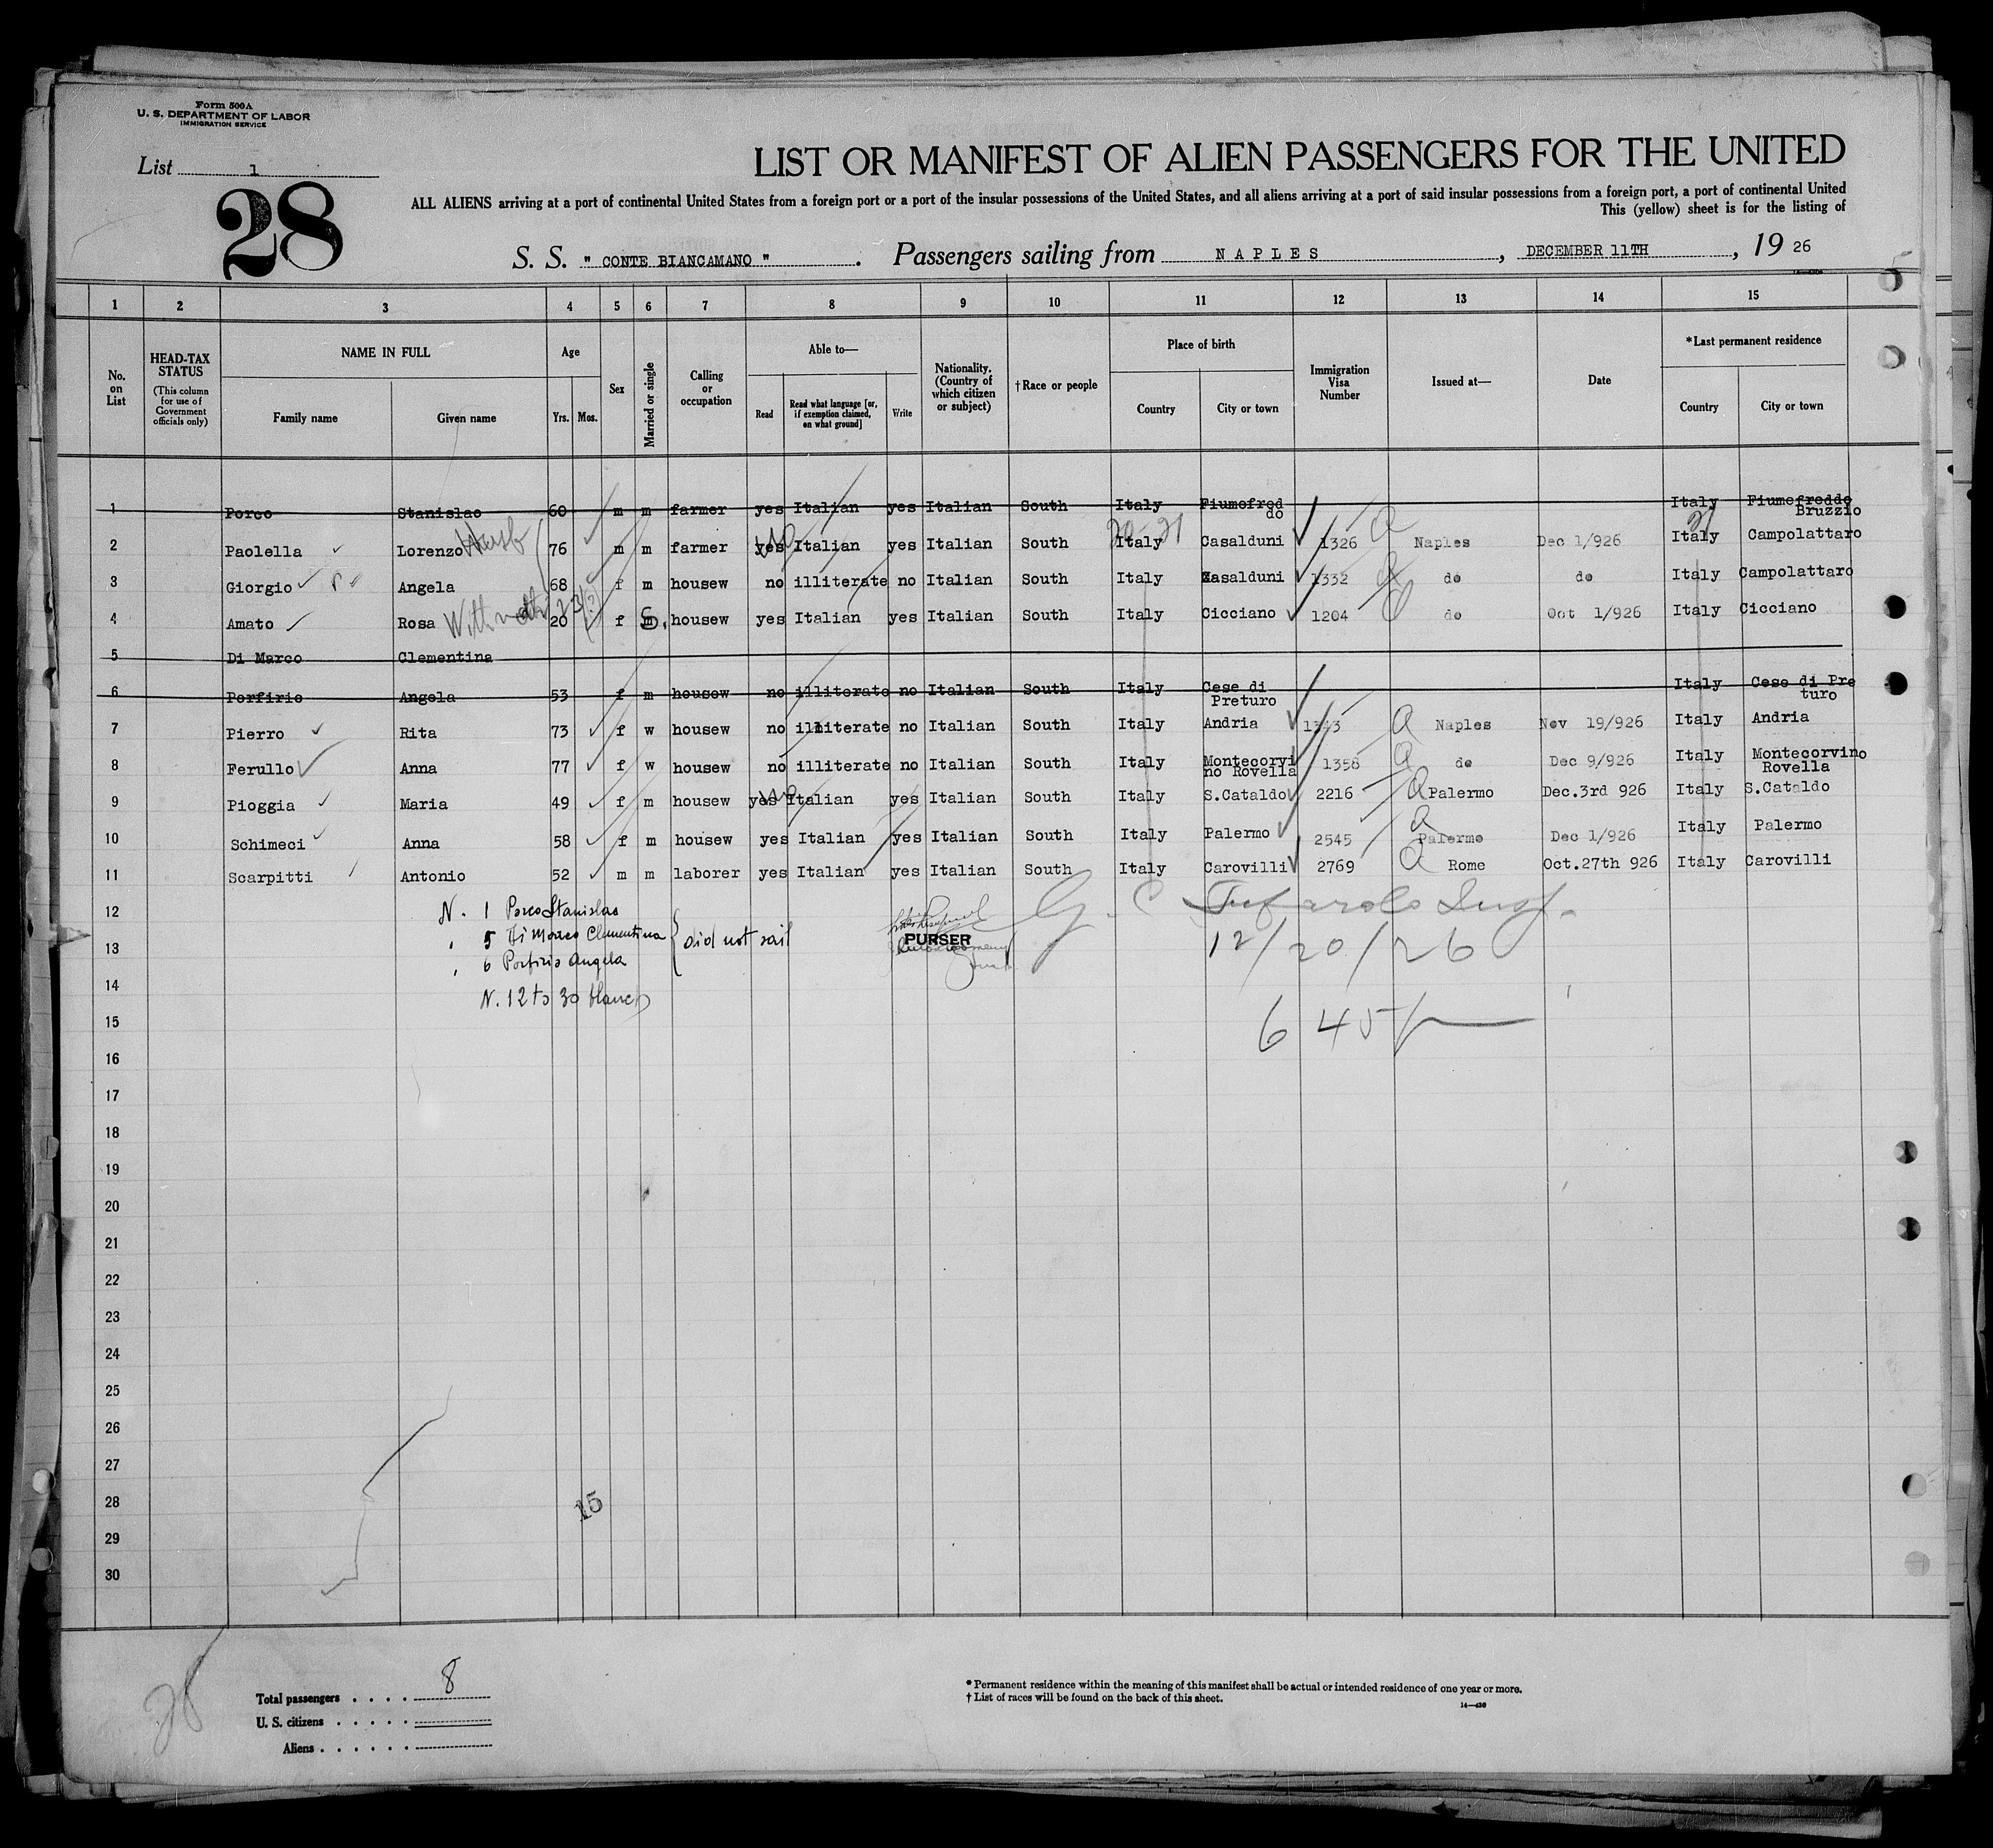 Form 500A
U. S. DEPARTMENT OF LABOR
IMMIGRATION SERVICE
List 1
28
LIST OR MANIFEST OF ALIEN PASSENGERS FOR THE UNITED
ALL ALIENS arriving at a port of continental United States from a foreign port or a port of the insular possessions of the United States, and all aliens arriving at a port of said insular possessions from a foreign port, a port of continental United
This (yellow) sheet is for the listing of
S. S. " CONTE BIANCAMANO " . Passengers sailing from NAPLES , DECEMBER 11TH , 19 26
1 2 3 4 5 6 7 8 9 10 11 12 13 14 15
No. on List
HEAD-TAX STATUS (This column for use of Government officials only)
NAME IN FULL
Family name
Given name
Age
Yrs. Mos.
Sex
Married or single
Calling or occupation
Able to—
Read
Read what language [or, if exemption claimed, on what ground]
Write
Nationality. (Country of which citizen or subject)
† Race or people
Place of birth
Country
City or town
Immigration Visa Number
Issued at—
Date
* Last permanent residence
Country
City or town
1 Porco Stanislao 60 m m farmer yes Italian yes Italian South Italy Fiumefreddo Italy Fiumefreddo Bruzzio
2 Paolella Lorenzo 76 m m farmer yes Italian yes Italian South Italy Casalduni 1326 Naples Dec 1/926 Italy Campolattaro
3 Giorgio Angela 68 f m housew no illiterate no Italian South Italy Casalduni 1332 do do Italy Campolattaro
4 Amato Rosa 20 f S. housew yes Italian yes Italian South Italy Cicciano 1204 do Oct 1/926 Italy Cicciano
5 Di Marco Clementina
6 Porfirio Angela 53 f m housew no illiterate no Italian South Italy Cese di Preturo Italy Cese di Preturo
7 Pierro Rita 73 f w housew no illiterate no Italian South Italy Andria 1343 Naples Nov 19/926 Italy Andria
8 Ferullo Anna 77 f w housew no illiterate no Italian South Italy Montecorvino Rovella 1358 do Dec 9/926 Italy Montecorvino Rovella
9 Pioggia Maria 49 f m housew yes Italian yes Italian South Italy S.Cataldo 2216 Palermo Dec.3rd 926 Italy S.Cataldo
10 Schimeci Anna 58 f m housew yes Italian yes Italian South Italy Palermo 2545 Palermo Dec 1/926 Italy Palermo
11 Scarpitti Antonio 52 m m laborer yes Italian yes Italian South Italy Carovilli 2769 Rome Oct.27th 926 Italy Carovilli
12 N. 1 Porco Stanislao
" 5 Di Marco Clementina } did not sail
13 PURSER 12/20/26
" 6 Porfirio Angela
14 N. 12 to 30 blanc
15 645
16
17
18
19
20
21
22
23
24
25
26
27
28 15
29
30
Total passengers . . . . 8
U. S. citizens . . . . .
Aliens . . . . . .
* Permanent residence within the meaning of this manifest shall be actual or intended residence of one year or more.
† List of races will be found on the back of this sheet.